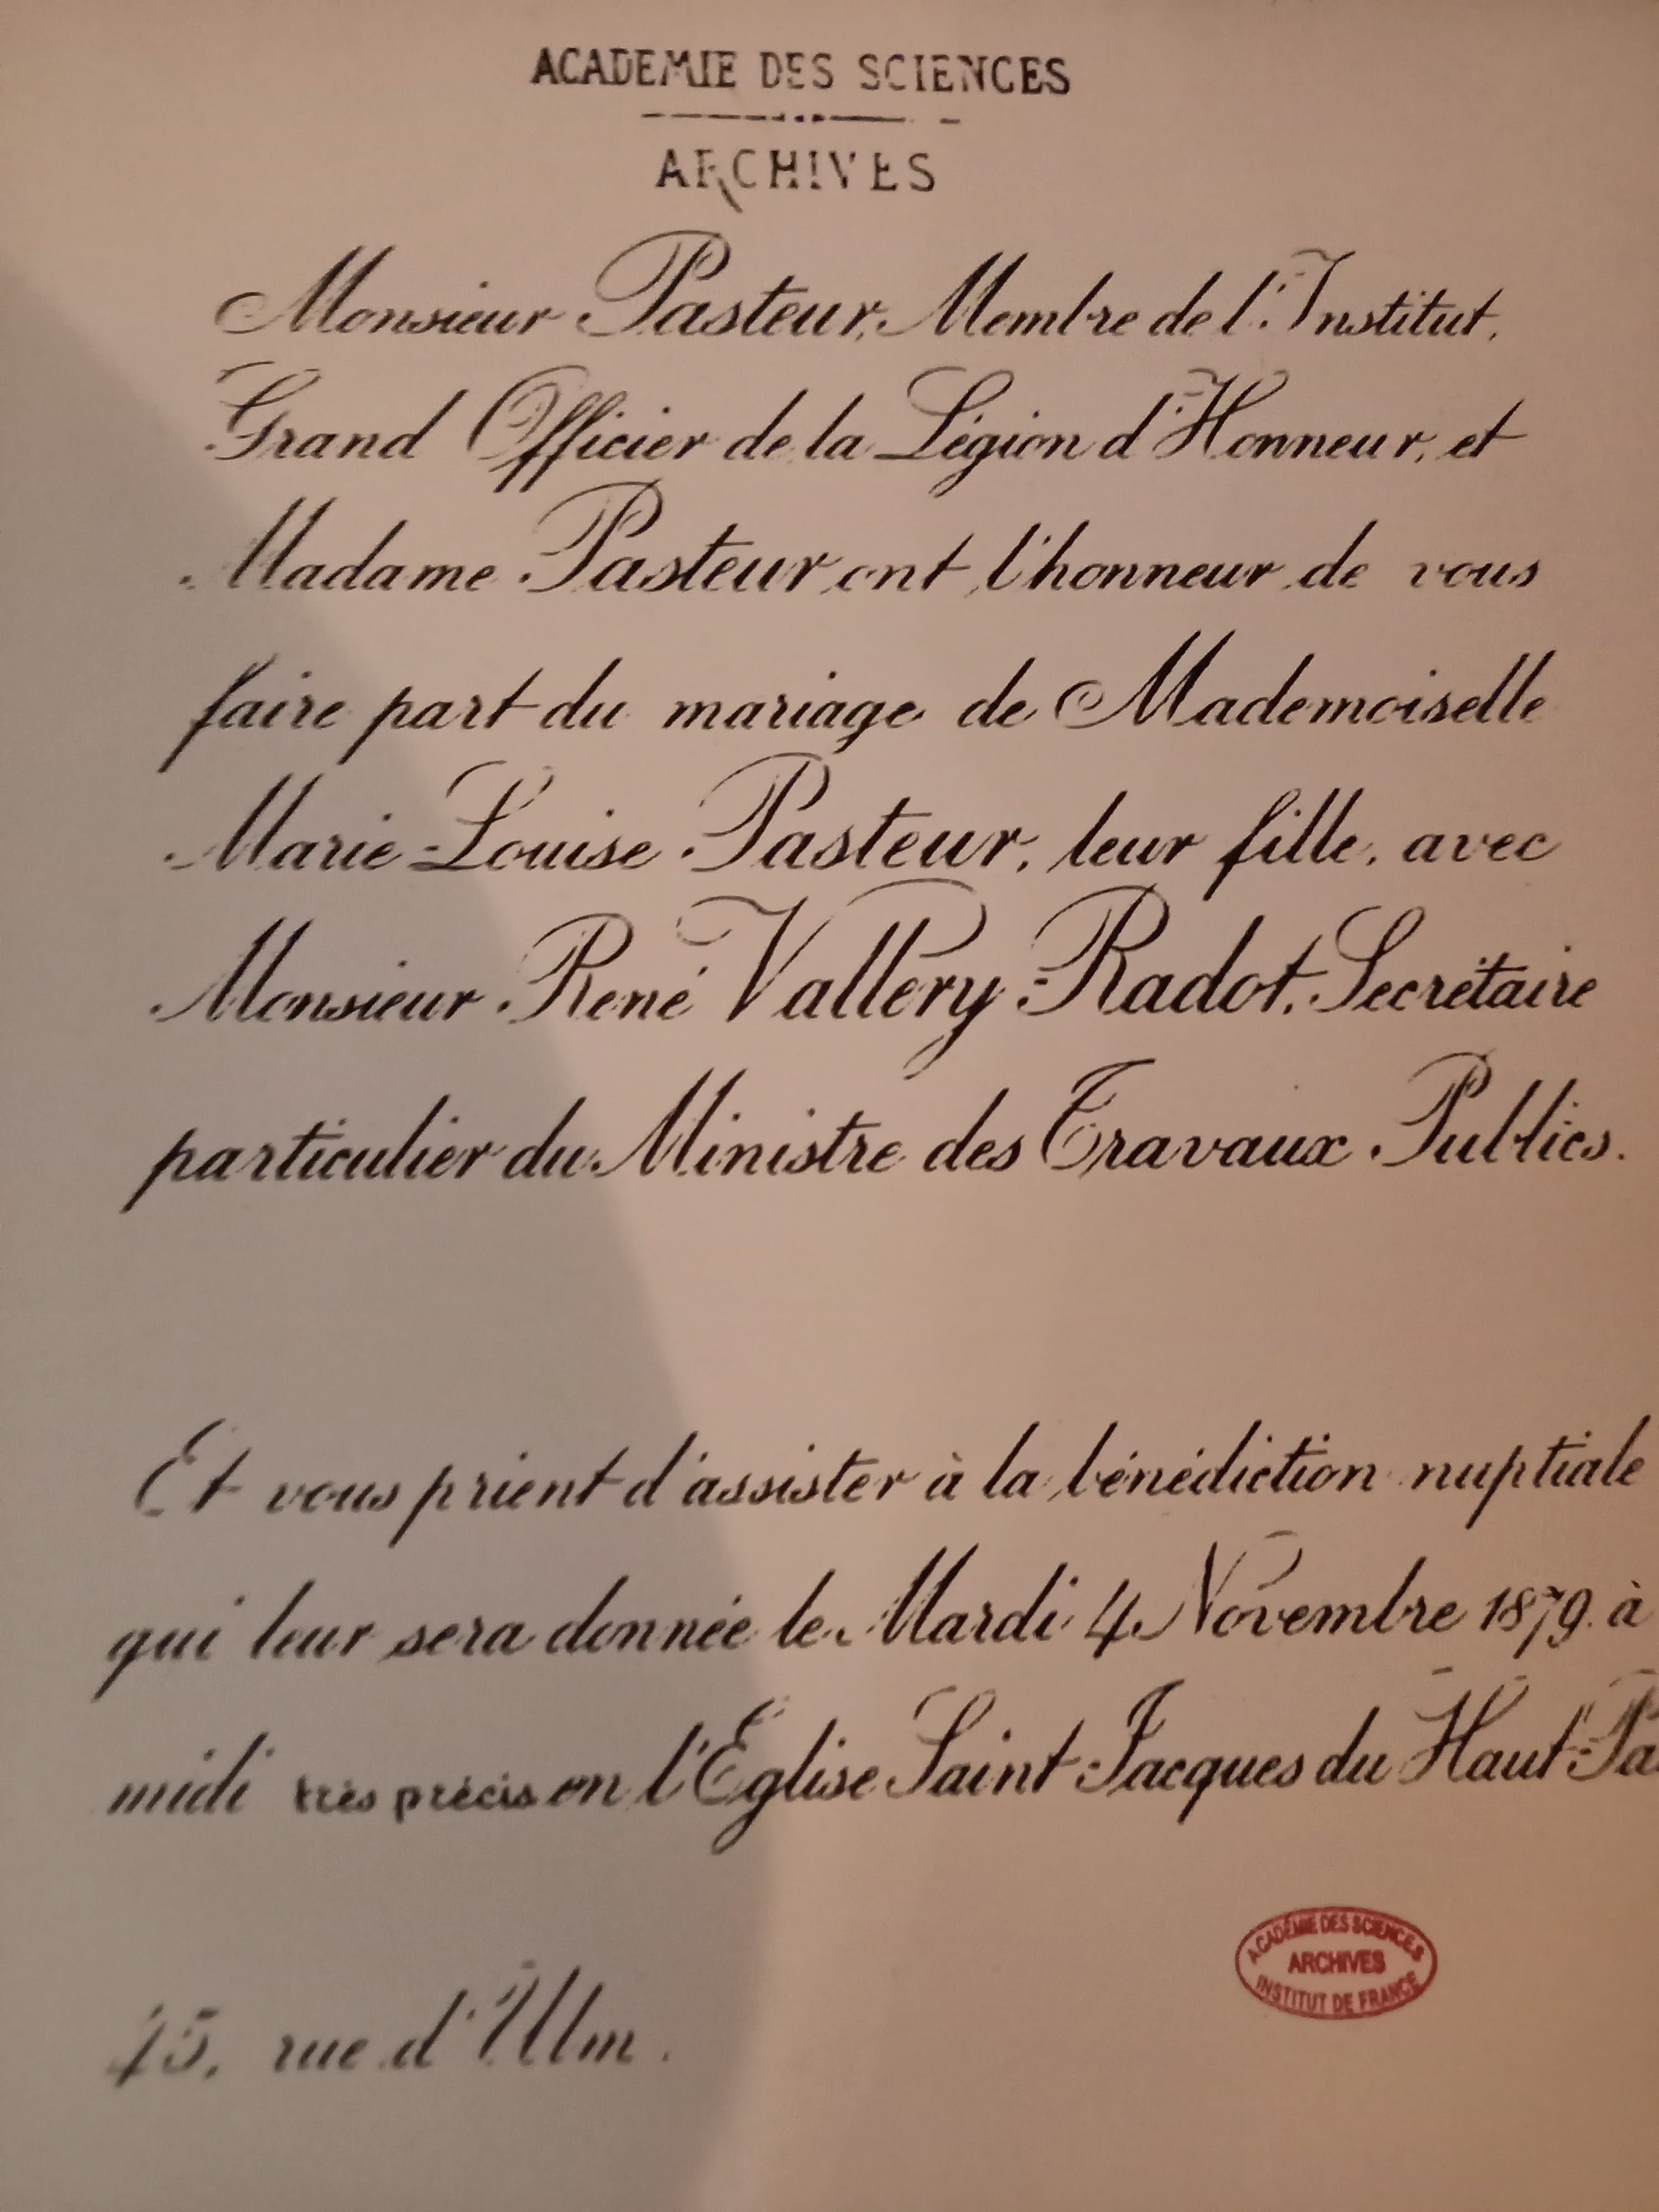 ACADEMIE DES SCIENCES
ARCHIVES
Monsieur Pasteur, Membre de l'Institut,
Grand Officier de la Légion d'Honneur, et
Madame Pasteur, ont l'honneur de vous
faire part du mariage de Mademoiselle
Marie-Louise Pasteur, leur fille, avec
Monsieur René Vallery-Radot, Secrétaire
particulier du Ministre des Travaux Publics.
Et vous prient d'assister à la bénédiction nuptiale
qui leur sera donnée le Mardi 4 Novembre 1879, à
midi très précis en l'Église Saint-Jacques du Haut-Pa
ACADÉMIE DES SCIENCES
ARCHIVES
INSTITUT DE FRANCE
45, rue d'Ulm.